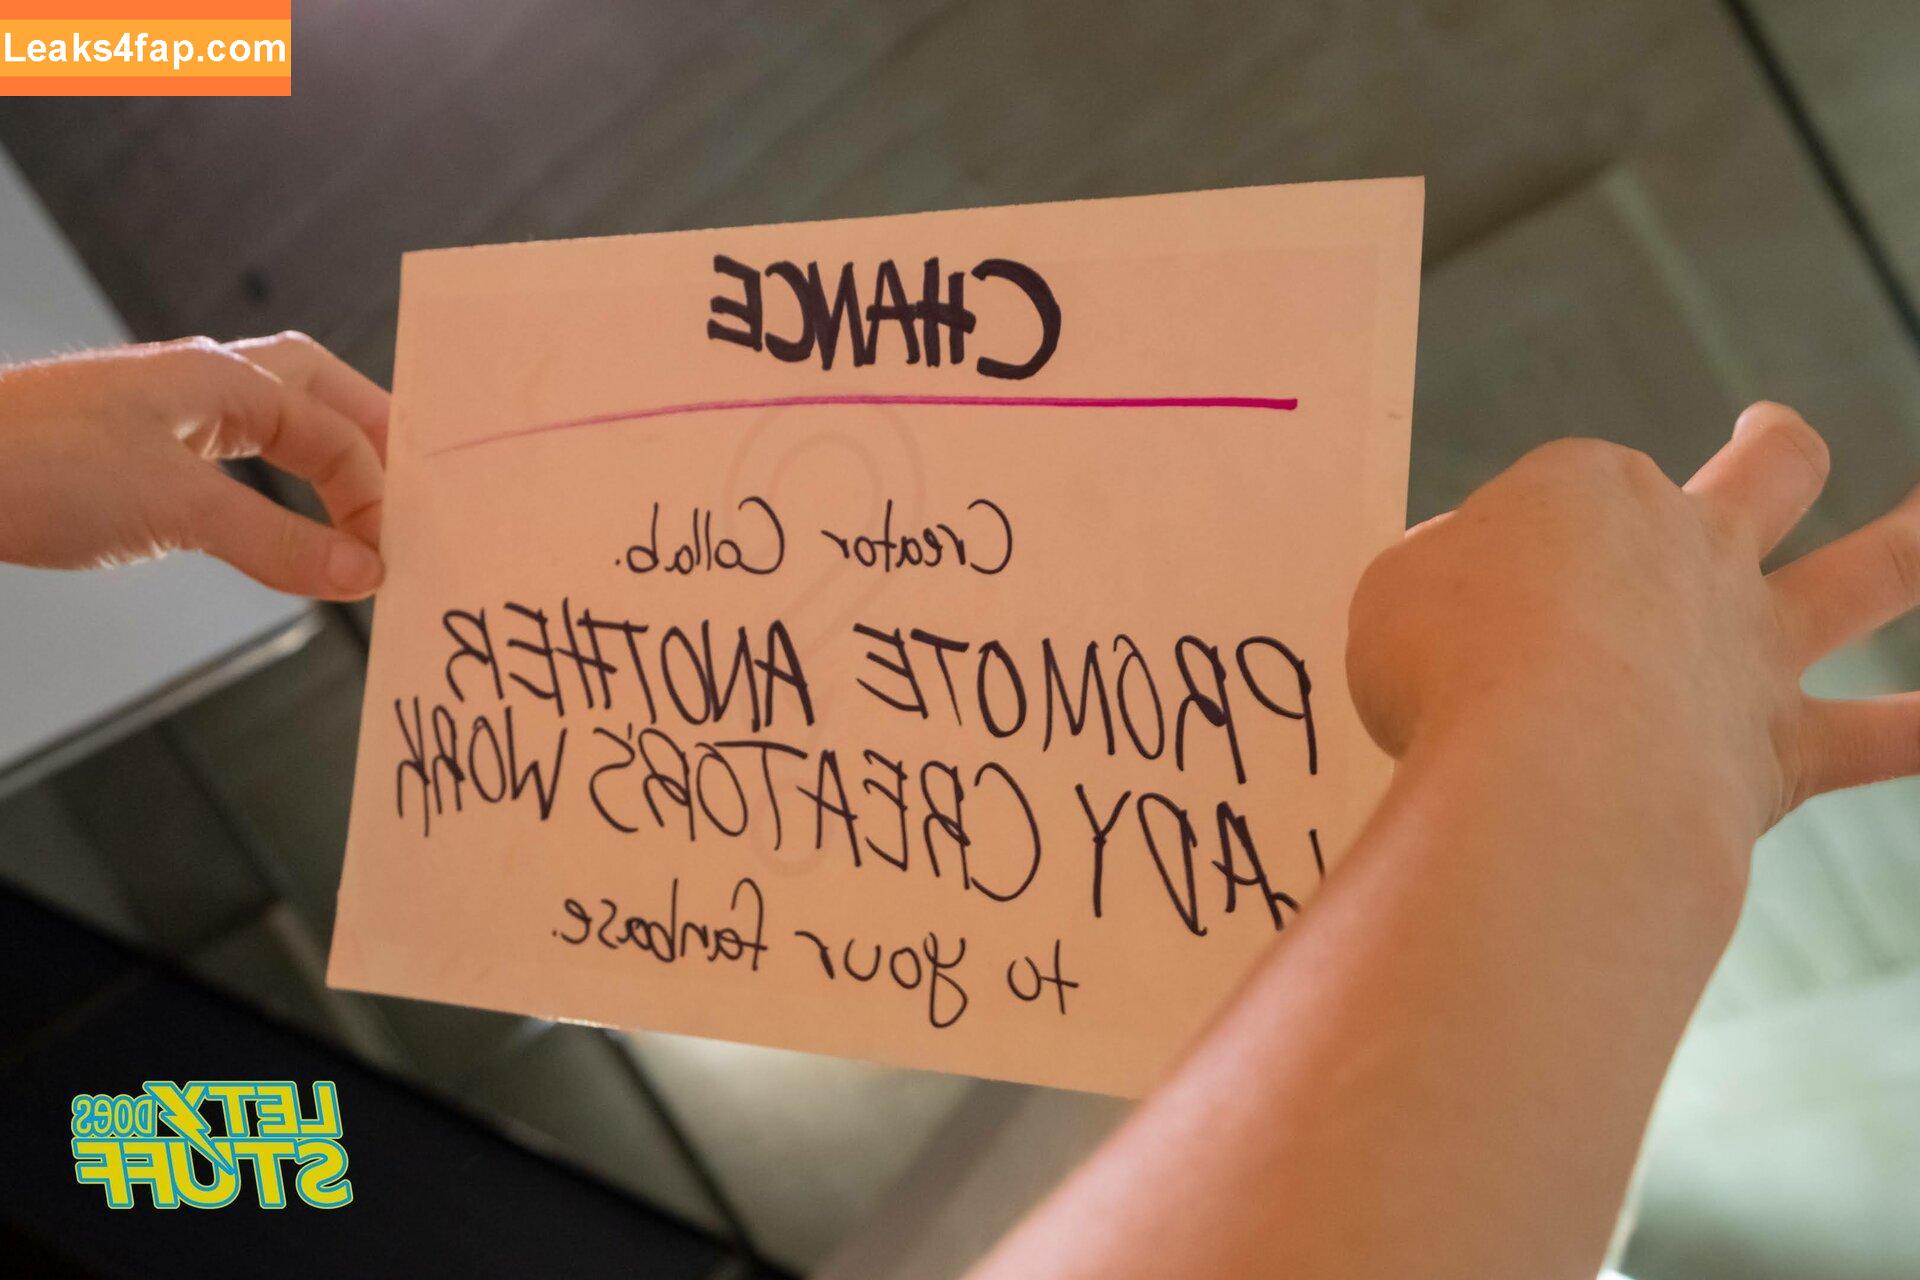 Leaks4fap.com
CHANCE
Creator Collab.
PROMOTE ANOTHER
LADY CREATOR'S WORK
to your fanbase.
LETY DOES
STUFF